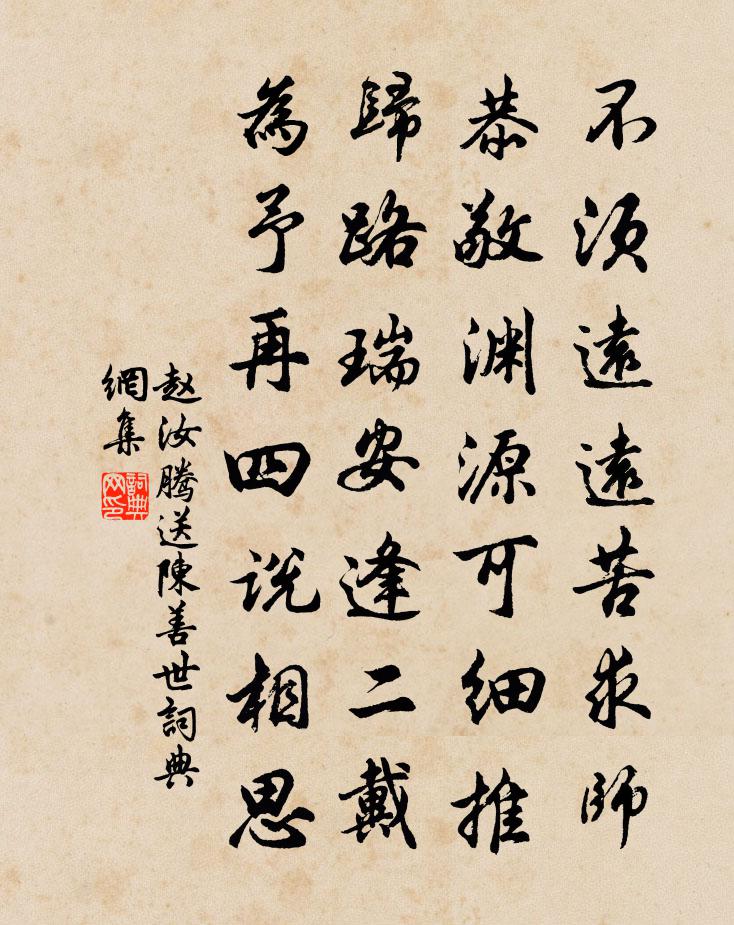 不須遠遠苦求師
恭敬渊源可細推
歸路瑞安逢二戴
為予再四説相思
赵汝腾送陳善世詞典
網集
詞典
网印